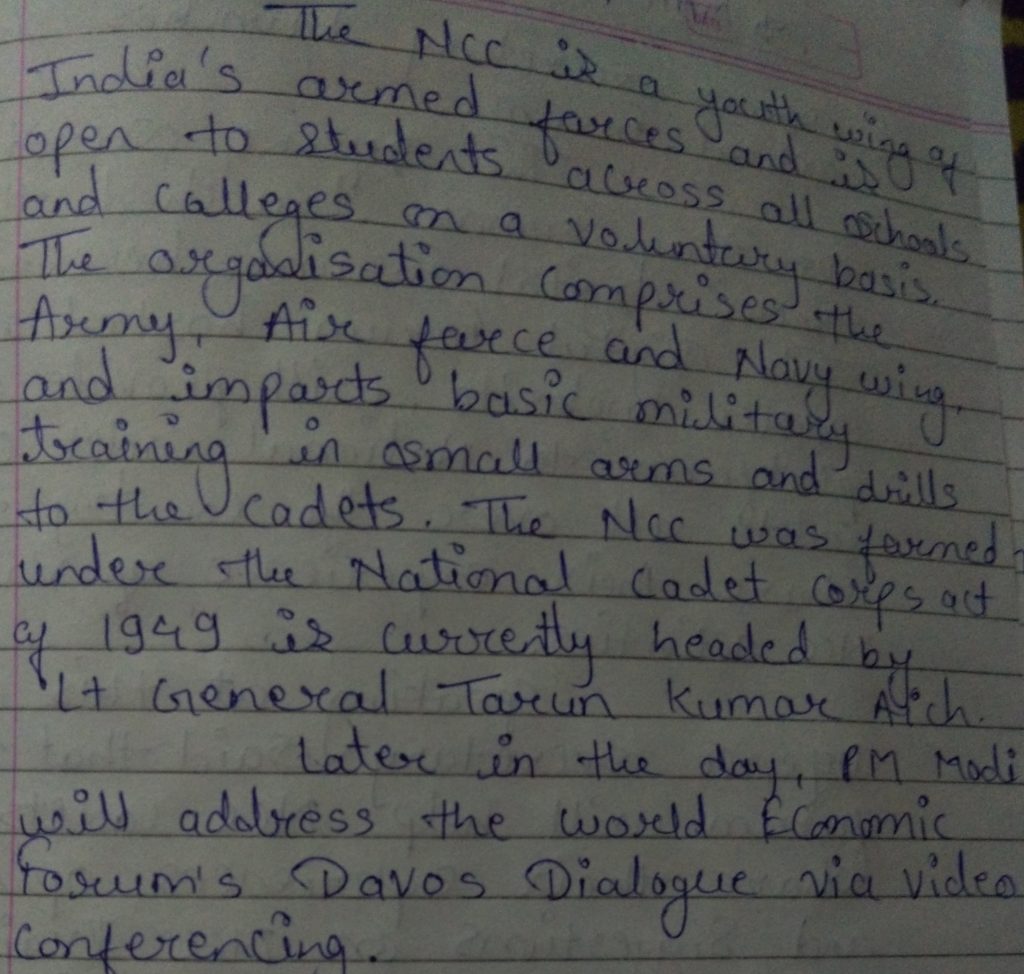 The NCC is a youth wing of
India's armed forces and is
open to students across all schools
and colleges on a voluntary basis.
The organisation comprises the
Army, Air force and Navy wing,
and imparts basic military
training in small arms and drills
to the cadets. The NCC was formed
under the National cadet corps act
of 1949 is currently headed by
Lt General Tarun Kumar Aich.
Later in the day, PM Modi
will address the world Economic
Forum's Davos Dialogue via video
conferencing.